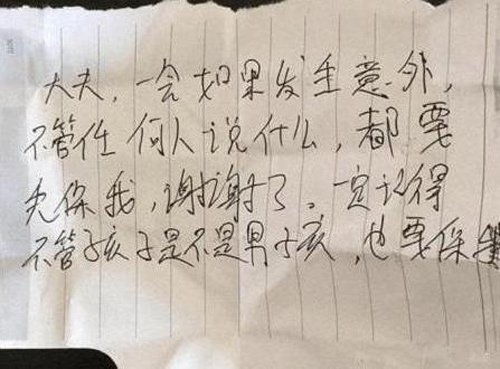 大夫，一会如果发生意外，
不管任何人说什么，都要
先保我，谢谢了。一定记得
不管孩子是不是男孩，也要保我